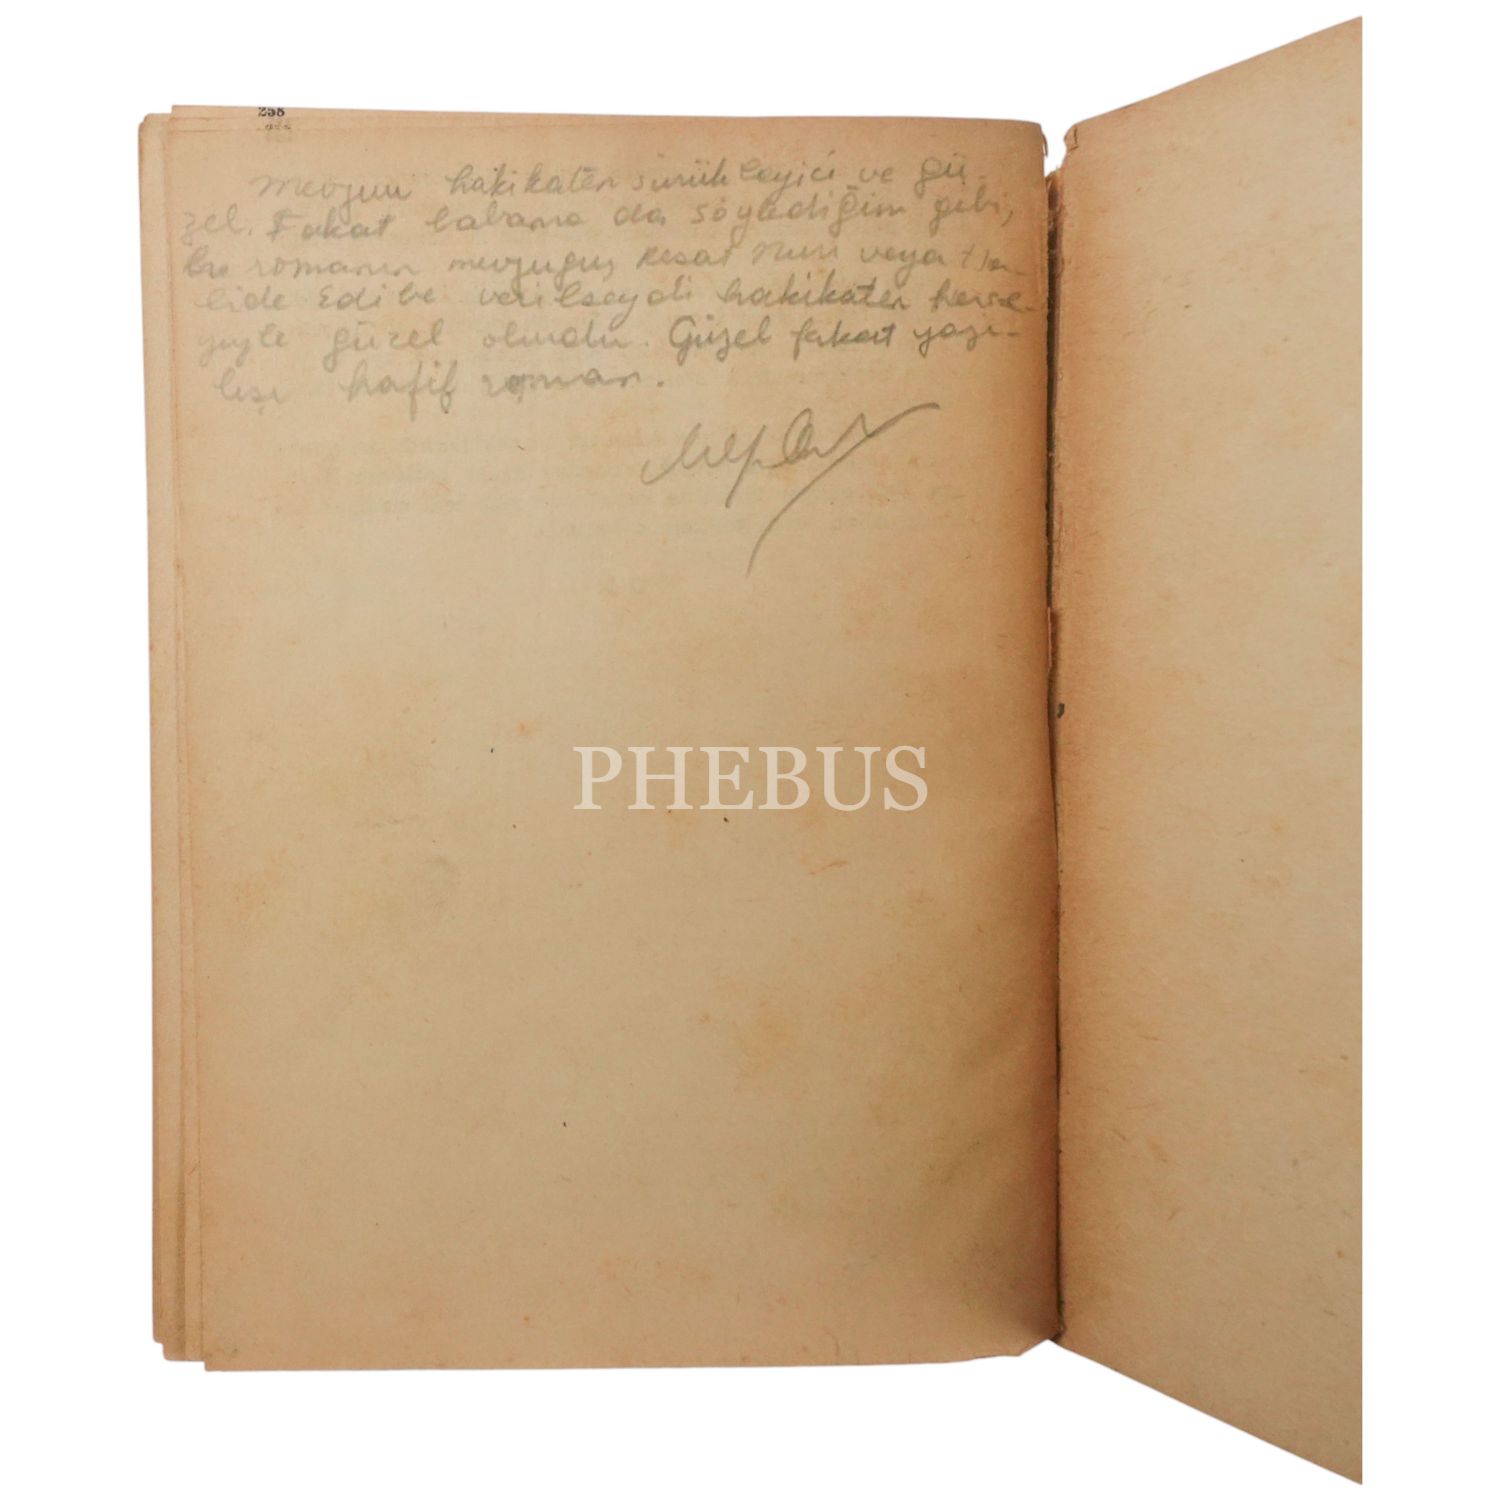 258
mevzuu hakikaten sürükleyici ve gü-
zel. Fakat babama da söylediğim gibi,
bu romanın mevzuğu, Resat Nuri veya Ha-
lide Edibe verilseydi hakikaten herşe-
yiyle güzel olurdu. Güzel fakat yazı-
lışı hafif roman.
PHEBUS